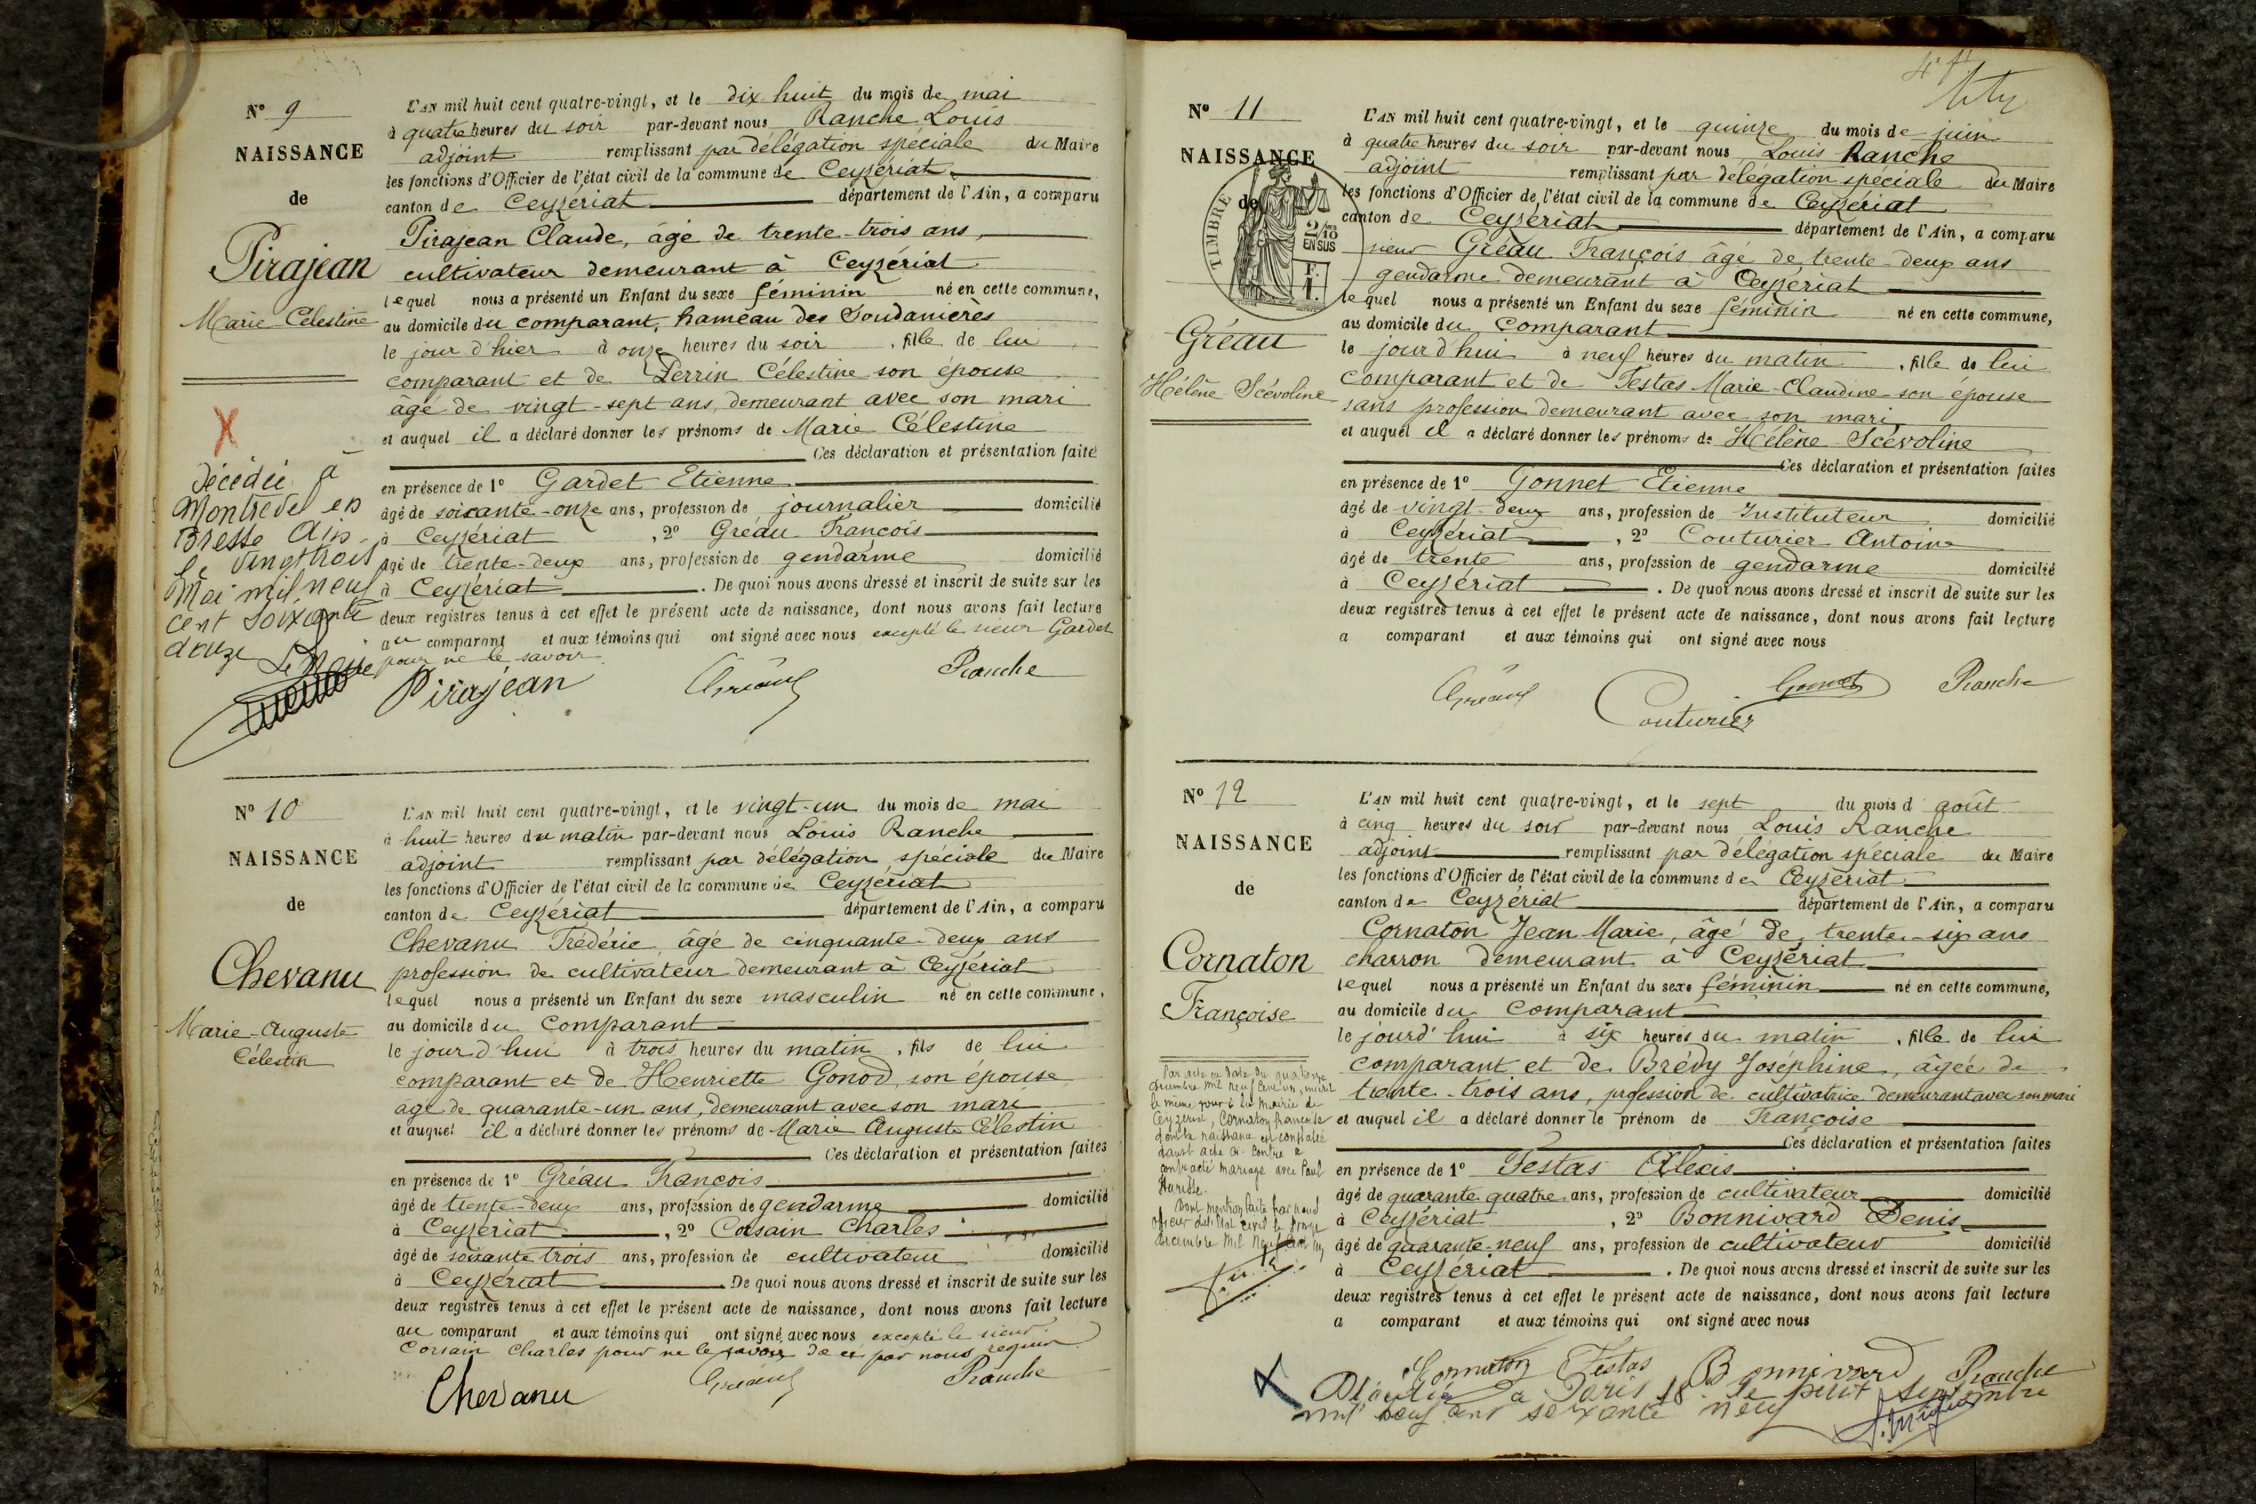 N° 9
NAISSANCE
de
Pirajean
Marie-Célestine
L'AN mil huit cent quatre-vingt, et le dix huit du mois de mai
à quatre heures du soir par-devant nous Ranche Louis
adjoint remplissant par délégation spéciale du Maire
les fonctions d'Officier de l'état civil de la commune de Ceyzériat
canton de Ceyzériat département de l'Ain, a comparu
Pirajean Claude, âgé de trente-trois ans,
cultivateur demeurant à Ceyzériat
lequel nous a présenté un Enfant du sexe féminin né en cette commune,
au domicile du comparant, hameau des Soudanières
le jour d'hier à onze heures du soir, fille de lui
comparant et de Perrin Célestine son épouse
âgé de vingt-sept ans, demeurant avec son mari
et auquel il a déclaré donner les prénoms de Marie Célestine
Ces déclaration et présentation faite
en présence de 1° Gardet Etienne
âgé de soixante-onze ans, profession de journalier domicilié
à Ceyzériat, 2° Gréau François
âgé de trente-deux ans, profession de gendarme domicilié
à Ceyzériat. De quoi nous avons dressé et inscrit de suite sur les
deux registres tenus à cet effet le présent acte de naissance, dont nous avons fait lecture
au comparant et aux témoins qui ont signé avec nous excepté le sieur Gardet
pour ne le savoir
Pirajean Gréau Ranche
X
Décédée à
Montrevel en
Bresse Ain
le vingt trois
Mai mil neuf
cent soixante
douze Le Maire
N° 10
NAISSANCE
de
Chevanu
Marie-Auguste
Célestin
L'AN mil huit cent quatre-vingt, et le vingt-un du mois de mai
à huit heures du matin par-devant nous Louis Ranche
adjoint remplissant par délégation spéciale du Maire
les fonctions d'Officier de l'état civil de la commune de Ceyzériat
canton de Ceyzériat département de l'Ain, a comparu
Chevanu Frédéric âgé de cinquante-deux ans
profession de cultivateur demeurant à Ceyzériat
lequel nous a présenté un Enfant du sexe masculin né en cette commune,
au domicile du comparant
le jour d'hui à trois heures du matin, fils de lui
comparant et de Henriette Gonod, son épouse
âgé de quarante-un ans, demeurant avec son mari
et auquel il a déclaré donner les prénoms de Marie Auguste Célestin
Ces déclaration et présentation faites
en présence de 1° Gréau François
âgé de trente-deux ans, profession de gendarme domicilié
à Ceyzériat, 2° Corsain Charles
âgé de soixante trois ans, profession de cultivateur domicilié
à Ceyzériat De quoi nous avons dressé et inscrit de suite sur les
deux registres tenus à cet effet le présent acte de naissance, dont nous avons fait lecture
au comparant et aux témoins qui ont signé avec nous excepté le sieur
Corsain Charles pour ne le savoir de ce par nous requis
Chevanu Gréau Ranche
N° 11
NAISSANCE
de
TIMBRE
2/10
EN SUS
F.
1.
Gréau
Hélène Scévoline
L'AN mil huit cent quatre-vingt, et le quinze du mois de juin
à quatre heures du soir par-devant nous Louis Ranche
adjoint remplissant par délégation spéciale du Maire
les fonctions d'Officier de l'état civil de la commune de Ceyzériat
canton de Ceyzériat département de l'Ain, a comparu
sieur Gréau François âgé de trente-deux ans
gendarme demeurant à Ceyzériat
lequel nous a présenté un Enfant du sexe féminin né en cette commune,
au domicile du comparant
le jour d'hui à neuf heures du matin, fille de lui
comparant et de Festas Marie-Claudine son épouse
sans profession demeurant avec son mari
et auquel il a déclaré donner les prénoms de Hélène Scévoline
Ces déclaration et présentation faites
en présence de 1° Gonnet Etienne
âgé de vingt-deux ans, profession de Instituteur domicilié
à Ceyzériat, 2° Couturier Antoine
âgé de trente ans, profession de gendarme domicilié
à Ceyzériat. De quoi nous avons dressé et inscrit de suite sur les
deux registres tenus à cet effet le présent acte de naissance, dont nous avons fait lecture
a comparant et aux témoins qui ont signé avec nous
Gréau Couturier Gonnet Ranche
N° 12
NAISSANCE
de
Cornaton
Françoise
Par acte en date du quatorze
décembre mil neuf cent un, inscrit
le même jour à la mairie de
Ceyzériat, Cornaton françoise
dont la naissance est constatée
dans l'acte ci-contre a
contracté mariage avec Paul
décembre mil neuf cent un
L'AN mil huit cent quatre-vingt, et le sept du mois d août
à cinq heures du soir par-devant nous Louis Ranche
adjoint remplissant par délégation spéciale du Maire
les fonctions d'Officier de l'état civil de la commune de Ceyzériat
canton de Ceyzériat département de l'Ain, a comparu
Cornaton Jean Marie, âgé de trente-six ans
charron demeurant à Ceyzériat
lequel nous a présenté un Enfant du sexe féminin né en cette commune,
au domicile du comparant
le jourd'hui à six heures du matin, fille de lui
comparant et de Brédy Joséphine, âgée de
trente-trois ans, profession de cultivatrice demeurant avec son mari
et auquel il a déclaré donner le prénom de Françoise
Ces déclaration et présentation faites
en présence de 1° Festas Alexis
âgé de quarante quatre ans, profession de cultivateur domicilié
à Ceyzériat, 2° Bonnivard Denis
âgé de quarante-neuf ans, profession de cultivateur domicilié
à Ceyzériat. De quoi nous avons dressé et inscrit de suite sur les
deux registres tenus à cet effet le présent acte de naissance, dont nous avons fait lecture
a comparant et aux témoins qui ont signé avec nous
Cornaton Festas Bonnivard Ranche
Décédée à Paris 18e le huit septembre
mil neuf cent soixante neuf